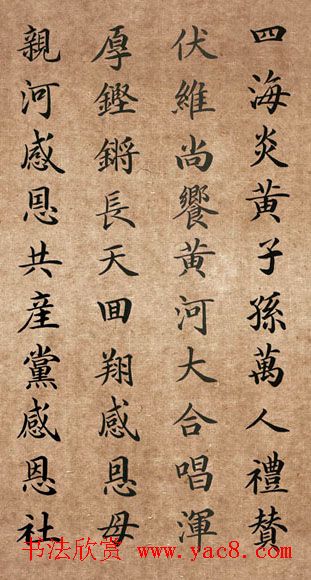 四海炎黄子孫萬人禮贊
伏維尚饗黄河大合唱渾
厚鏗鏘長天回翔感恩母
親河感恩共產黨感恩社
书法欣赏 www.yac8.com